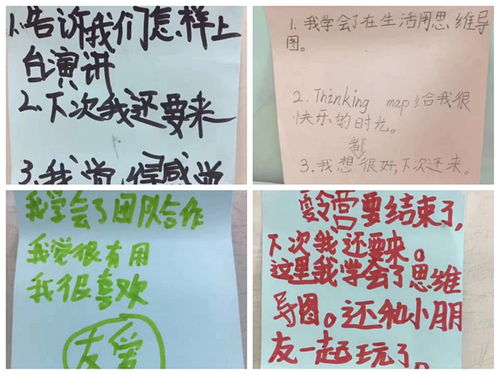 1.告诉我们怎样上
台演讲
2.下次我还要来
3.我觉得感觉
1.我学会了在生活用思维导
图。
2.Thinking map给我很
快乐的时光。
都
3.我想很好,下次还来。
我学会了团队合作
我觉很有用
我很喜欢
友爱
夏令营要结束了,
下次我还要来。
这里我学会了思维
导图。还和小朋
友一起玩了。